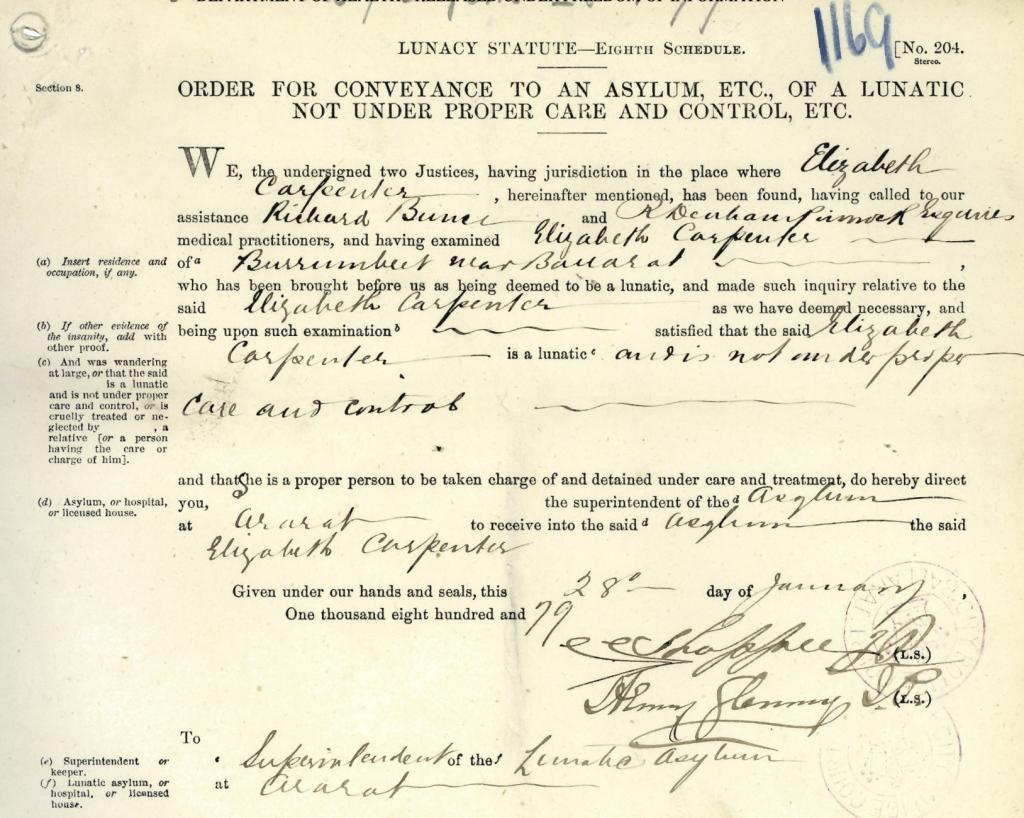 DEPARTMENT OF HEALTH RELEASED UNDER FREEDOM OF INFORMATION
1169
LUNACY STATUTE—EIGHTH SCHEDULE.
[No. 204.
Stereo.
Section 8.
ORDER FOR CONVEYANCE TO AN ASYLUM, ETC., OF A LUNATIC
NOT UNDER PROPER CARE AND CONTROL, ETC.
WE, the undersigned two Justices, having jurisdiction in the place where Elizabeth
Carpenter, hereinafter mentioned, has been found, having called to our
assistance Richard Bunce and R Denham Pinnock Esquires
medical practitioners, and having examined Elizabeth Carpenter
(a) Insert residence and
occupation, if any.
of a Burrumbeet near Ballarat,
who has been brought before us as being deemed to be a lunatic, and made such inquiry relative to the
said Elizabeth Carpenter as we have deemed necessary, and
(b) If other evidence of
the insanity, add with
other proof.
being upon such examination b satisfied that the said Elizabeth
Carpenter is a lunatic c and is not under proper
(c) And was wandering
at large, or that the said
is a lunatic
and is not under proper
care and control, or is
cruelly treated or ne-
glected by , a
relative [or a person
having the care or
charge of him].
care and control
and that She is a proper person to be taken charge of and detained under care and treatment, do hereby direct
(d) Asylum, or hospital,
or licensed house.
you, the superintendent of the d Asylum
at Ararat to receive into the said d asylum the said
Elizabeth Carpenter
Given under our hands and seals, this 28° day of January,
One thousand eight hundred and 79
JP (L.S.)
Henry Glenny J.P. (L.S.)
To
(e) Superintendent or
keeper.
e Superintendent of the f Lunatic Asylum
(f) Lunatic asylum, or
hospital, or licensed
house.
at Ararat